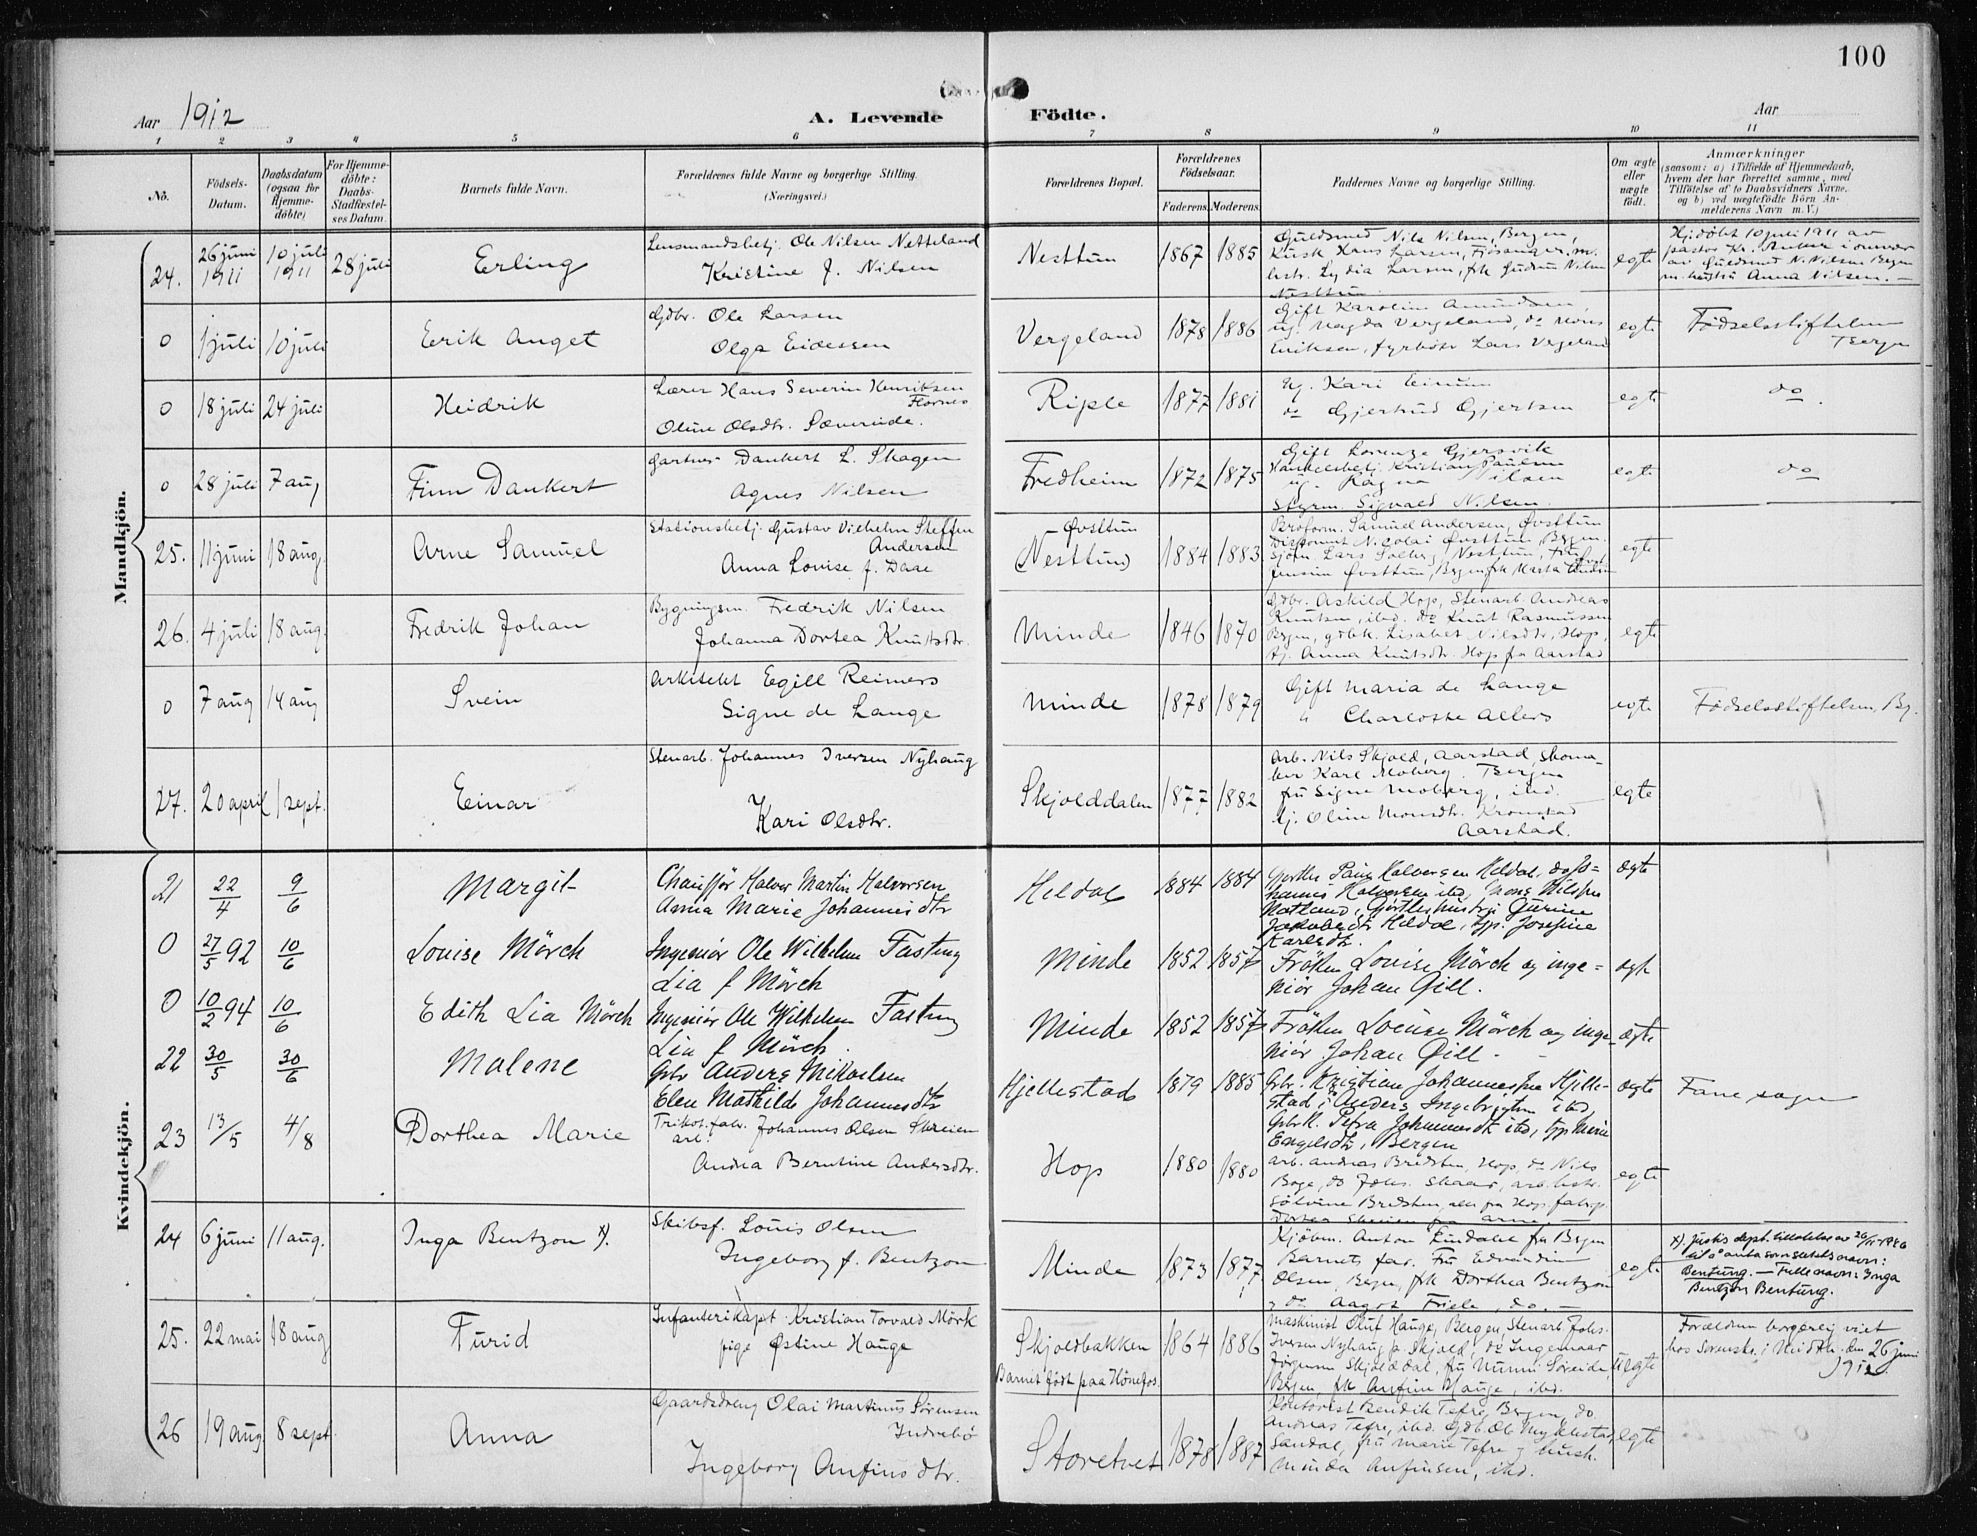 100
Aar 1912
A. Levende Födte.
Aar
1 2 3 4 5 6 7 8 9 10 11
No.
Födsels-Datum.
Daabsdatum (ogsaa for Hjemme-döbte)
For Hjemme-döbte: Daabs-Stadfæstel-ses Datum.
Barnets fulde Navn.
Forældrenes fulde Navne og borgerlige Stilling. (Næringsvei.)
Forældrenes Bopæl.
Forældrenes Födselsaar.
Faderens. Moderens.
Faddernes Navne og borgerlige Stilling.
Om ægte eller uægte födt.
Anmærkninger
(saasom: a) i Tilfælde af Hjemmedaab,
hvem der har forrettet samme, med
Tilföielse af to Daabsvidners Navne.
og b) ved uægtefödte Börn An-
melderens Navn m. V.)
Mandkjön.
24. 26 juni 1911 10 juli 1911 28 juli Erling
Lensmandsbetj. Ole Nilsen Netteland
Kristine f. Nilsen
Nesttun 1867 1885
Guldsmed Nils Nilsen, Bergen,
Kusk Hans Larsen, Fjösanger, m.
hstr. Lydia Larsen, frk Gudrun Nilsen
Nesttun.
egte
Hj.döbt 10 juli 1911 av
pastor Kr. Anker i overvær
av Guldsmed N. Nilsen Bergen
m. hustru Anna Nilsen. —
0 1 juli 10 juli Erik Anget
Gdbr. Ole Larsen
Olga Eidessen
Vergeland 1878 1886
Gift Karoline Amundsen,
ug. Magda Vergeland, do
Eriksen, fyrböter Lars Vergeland
egte
Födselsstiftelsen Bergen
0 18 juli 24 juli Heidrik
Lærer Hans Severin Henriksen
Flornes
Oline Olsdtr. Sæverude.
Riple 1877 1881
Ug. Kari Einum
do Gjertrud Gjertsen
egte
do.
0 28 juli 7 aug Finn Dankert
Gartner Dankert L. Skagen
Agnes Nilsen
Fredheim 1872 1875
Gift Lorenze Gjersvik
Handelsbetj. Kristian Paulsen
ug. Ragna Nilsen
Styrm. Sigvald Nilsen.
egte
do
25. 11 juni 18 aug. Arne Samuel
Stationsbetj. Gustav Vilhelm Steffen
Andersen
Anna Lovise f. Daae
Øvsttun
Nesttund 1884 1883
Broform. Samuel Andersen, Øvsttun
Disponent Nicolai Øvsttun Bergen.
Sjöm. Lars Solberg, Nesttun,
Jensine Øvsttun, Bergen frk Marta
egte
26. 4 juli 18 aug. Fredrik Johan
Bygningsm. Fredrik Nilsen
Johanna Dortea Knutsdtr.
Minde 1846 1870
Gdbr. Askild Hop, Stenarb. Andreas
Knutsen, ibid. do Knut Rasmussen
Bergen, gdbk. Lisabet Nilsdtr, Hop,
tj. Anna Knutsdtr. Hop fra Aarstad
egte
0 7 aug 14 aug Svein
Arkitekt Egill Reimers
Signe de Lange
Minde 1878 1879
Gift Maria de Lange
" Charlotte Allers
egte
Födselsstiftelsen, Bg.
27. 20 april 1 sept. Einar
Stenarb. Johannes Iversen Nyhaug
Kari Olsdtr.
Skjolddalen 1877 1882
Arb. Nils Skjold, Aarstad, Skoma-
ker Karl Moberg. Bergen
fru Signe Moberg, ibid.
tj. Oline Monsdtr. Kronstad
Aarstad.
egte
Kvindekjön.
21 22/4 9/6 Margit
Chaufför Halvor Martin Halvorsen
Anna Marie Johannesdtr
Heldal 1884 1884
Halvorsen Heldal, do Jo-
hannes Halvorsen ibd, Mons Nilsen
Natland, Gjörtlerhustru Gurine
Jakobsdtr Heldal, tjp. Josefine
Karlsdtr.
ægte
0 27/5 92 10/6 Louise Mörch
Ingeniör Ole Wilhelm Fasting
Lia f Mörch
Minde 1852 1857
Fröken Louise Mörch og inge-
niör Johan Gill.
ægte
0 10/2 94 10/6 Edith Lia Mörch
Ingeniör Ole Wilhelm Fasting
Lia f Mörch.
Minde 1852 1857
Fröken Louise Mörch og inge-
niör Johan Gill.
ægte
22 30/5 30/6 Malene
Gbr Anders Mikkelsen
Elen Mathilde Johannesdtr
Hjellestad 1879 1885
Gbr. Kristian Johannessen Hjelle-
stad, Anders Ingebrigtsen ibd,
Gbrk. Petra Johannesdtr ibd, tjp. Marie
Engelsdtr, Bergen
ægte
Fane sogn
23 13/5 4/8 Dorthea Marie
Trikot.fabr. Johannes Olsen Skreien
arb.
Andrea Berntine Andersdtr.
Hop 1880 1880
Arb. Andreas Bredsten, Hop, do Nils
Boge, do Johs. Skaar, arb. hstr.
Sölvine Bredsten, alle fra Hop, fabrp.
Dortea Skreien fra Arne. —
egte
24 6 juni 11 aug. Inga Bentzon x).
Skibsf. Louis Olsen
Ingeborg f. Bentzon
Minde 1873 1877
Kjöbm. Anton Lindahl fra Bergen
Barnets far. Fru Edvardine
Olsen, Bergen, frk Dorthea Bentzon
og do Aagot Friele, do. —
egte
x). Justis dept. tillatelse av 26/11-1926
til å anta som slektsnavn:
Bentung. — Fulle navn: Inga
Bentzon Bentung.
25. 22 mai 18 aug Turid
Infanterikapt. Kristian Torvald Mörk
pige Østine Hauge
Skjoldbakken
Barnet födt paa Hönefos.
1864 1886
Maskinist Oluf Hauge, Bergen, Stenarb. Johs.
Iversen Nyhaug p. Skjold, do Ingemaar
Jörgensen Skjolddal, fru Nunni Söreide,
Bergen, frk Anfine Hauge, ibd.
uegte
Forældrene borgerlig viet
hos Sorenskr. i Midthl. den 26 juni
1912.
26 19 aug 8 sept. Anna
Gaardsdreng Olai Martinus Sörensen
Indrebö
Ingeborg Anfinsdtr.
Storetvet 1878 1887
Kontorist Bendik Tefre, Bergen, do
Andreas Tefre, ibid. Gdb. Ole Myklestad,
Sandal, fru Marie Tefre og hush.
Minda Anfinsen, ibd.
egte